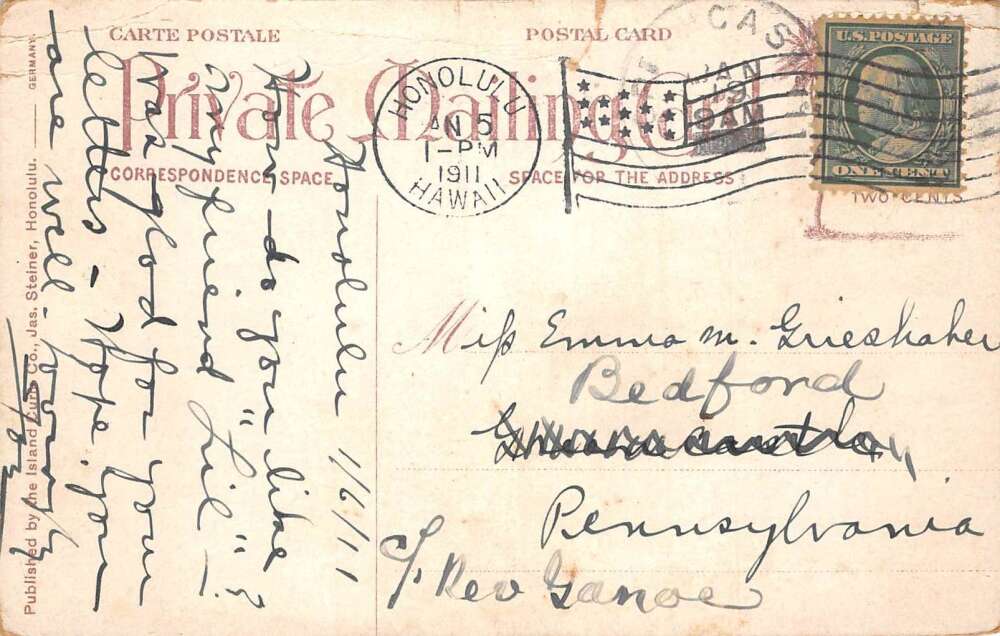 CARTE POSTALE
POSTAL CARD
Private Mailing Card
CORRESPONDENCE SPACE
SPACE FOR THE ADDRESS
HONOLULU
JAN 5
1-PM
1911
HAWAII
CAS
JAN
19
9AM
U.S. POSTAGE
ONE CENT
TWO CENTS
Honolulu 1/6/11
How do you like
my friend "Lil"?
Was glad for your
letters - Hope you
are well - yours
Miss Emma M. Grieshaber
Bedford
Greencastle,
Pennsylvania
c/o Rev Ganoe
Published by the Island Curio Co., Jas. Steiner, Honolulu.
GERMANY.